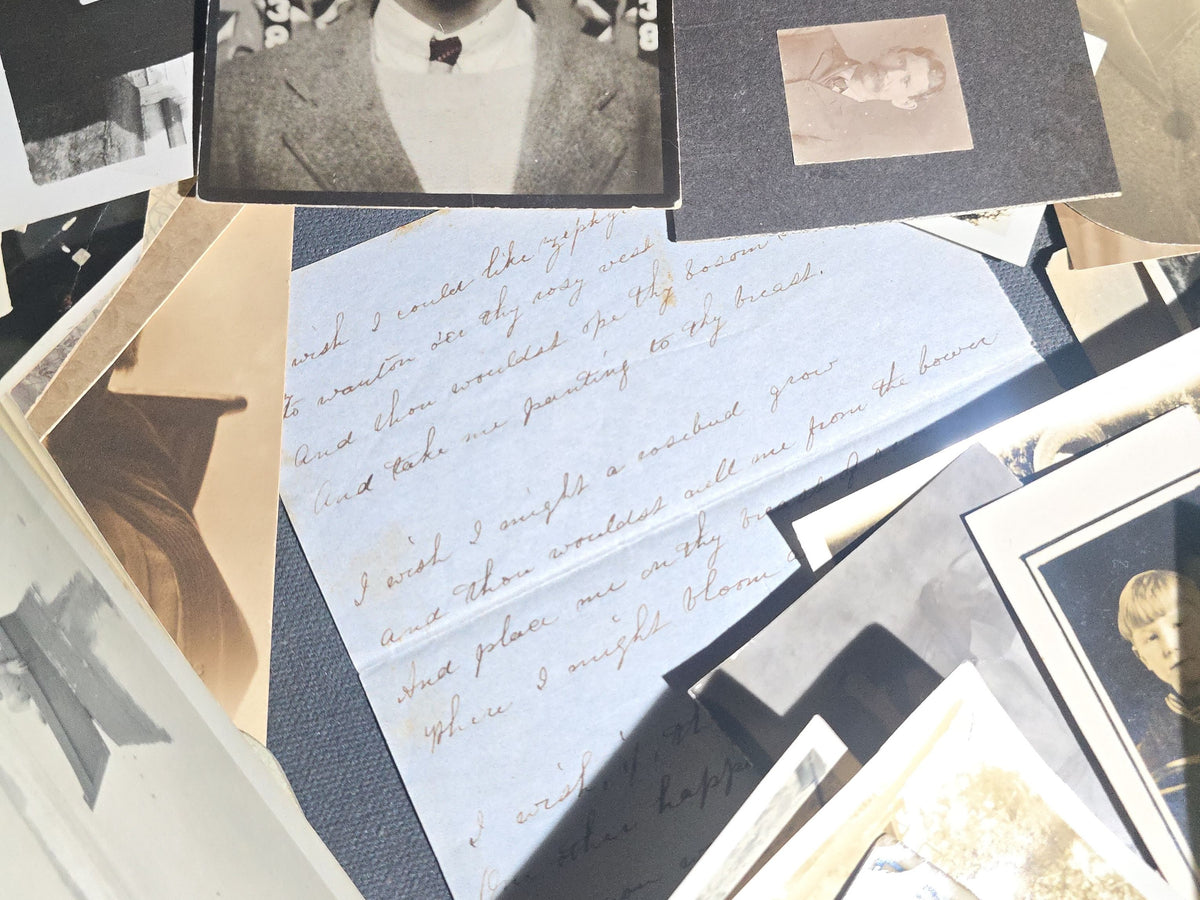 38
39
wish I could like zephyr
to wanton o'er thy rosy vest
And thou wouldst ope thy bosom
And take me panting to thy breast.
I wish I might a rosebud grow
and thou wouldst cull me from the bower
And place me on thy breast
Where I might bloom
I wish
happ